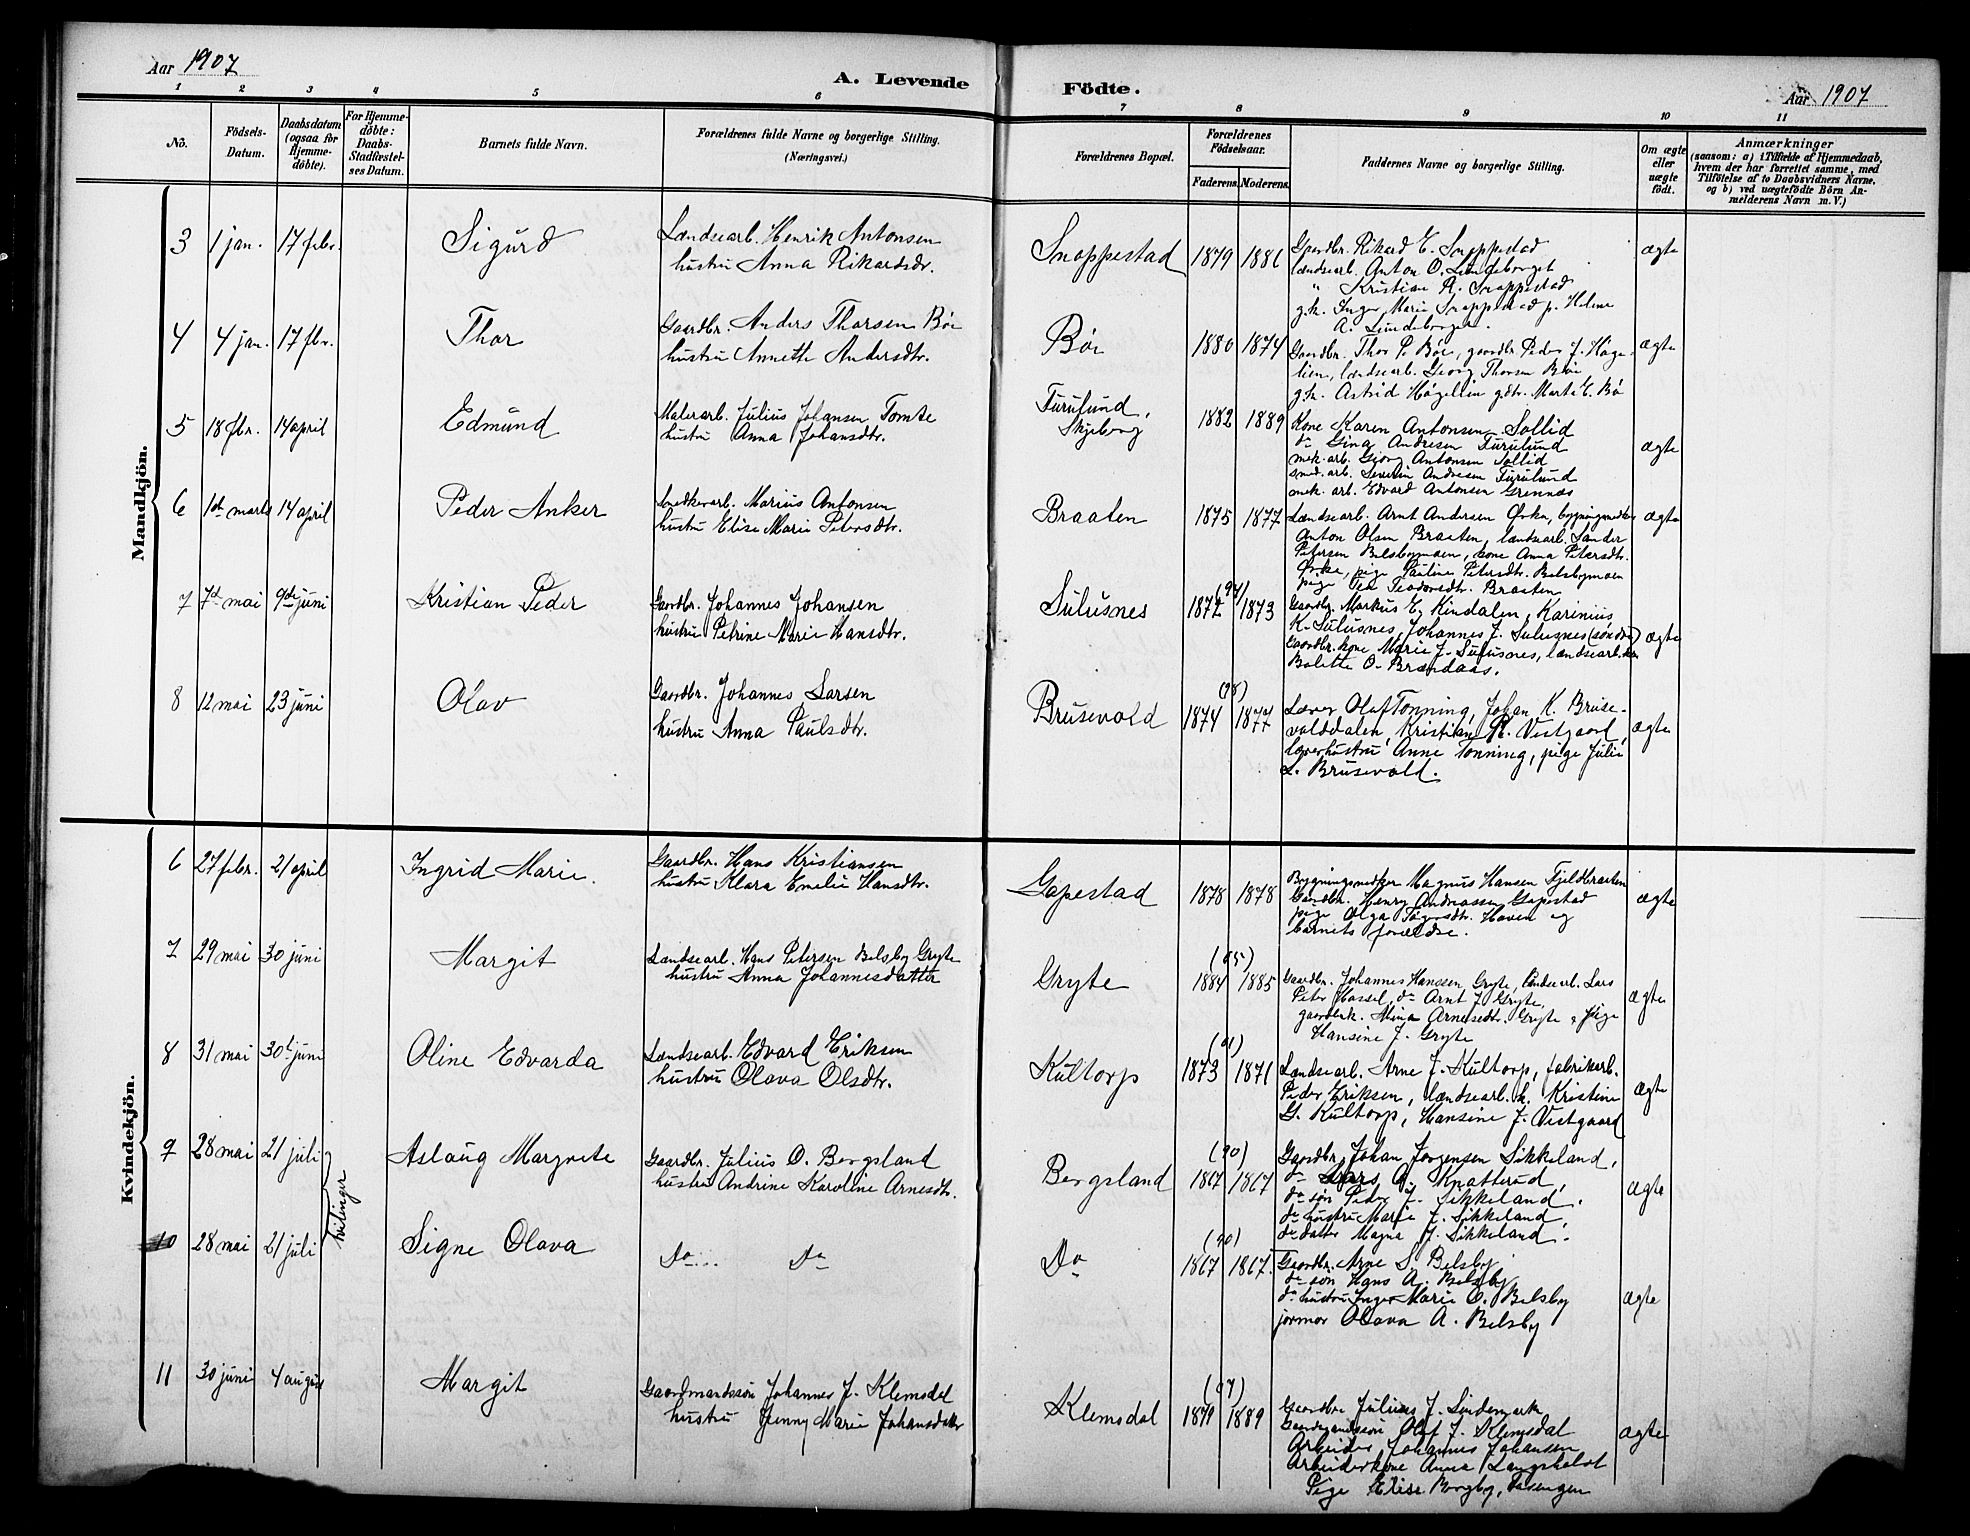 Aar 1907
A. Levende Födte.
Aar 1907
1 2 3 4 5 6 7 8 9 10 11
No.
Födsels-
Datum.
Daabsdatum
(ogsaa for
Hjemme-
döbte).
For Hjemme-
döbte:
Daabs-
Stadfæstel-
ses Datum.
Barnets fulde Navn.
Forældrenes fulde Navne og borgerlige Stilling.
(Næringsvei.)
Forældrenes Bopæl.
Forældrenes
Födselsaar.
Faderens. Moderens.
Faddernes Navne og borgerlige Stilling.
Om ægte
eller
uægte
födt.
Anmærkninger
(saasom: a) i Tilfælde af Hjemmedaab,
hvem der har forrettet samme, med
Tilföielse af to Daabsvidners Navne,
og b) ved uægtefödte Börn An-
melderens Navn m. V.)
Mandkjön.
3 1 jan. 17 febr. Sigurd
Landsearb. Henrik Antonsen
hustru Anna Rikardsdr.
Snoppestad 1879 1881
Gaardbr. Rikard E. Snoppestad
landsearb. Anton O. Lindeborget
" Kristian R. Snoppestad
g.k. Inger Marie Snoppestad p. Helene
A. Lindeborget.
ægte
4 4 jan. 17 fbr. Thor
Gaardbr. Anders Thorsen Bøe
hustru Annette Andersdtr.
Bøe 1880 1874
Gaardbr. Thor P. Bøe, gaardbr. Peder J. Høge-
lien, landsearb. Georg Thorsen Bøe
g.k. Astrid Høgelien gdtr. Marte E. Bø
ægte
5 18 fbr. 14 april Edmund
Malerarb. Julius Johansen Tomte
hustru Anna Johansdtr.
Furulund,
Skjeberg
1882 1889
Kone Karen Antonsen Sollid
do Gina Andresen Furulund
mek. arb. Georg Antonsen Sollid
smed. arb. Severin Andresen Furulund
mek. arb. Edvard Antonsen Grennæs
ægte
6 1ste marts 14 april Peder Anker
Snedkerarb. Marius Antonsen
hustru Elise Marie Petersdtr.
Braaten 1875 1877
Landsearb. Arnt Andersen Ørke, bygningssnedker
Anton Olsen Braaten, landsearb. Sander
Petersen Belsbymoen, kone Anna Petersdtr.
Ørke, pige Pauline Petersdtr. Belsbymoen
pige Tea Teodorsdtr. Braaten
ægte
7 7de mai 9de juni Kristian Peder
Gaardbr. Johannes Johansen
hustru Petrine Marie Hansdtr.
Sulusnes 1872 (94) 1873
Gaardbr. Markus E. Kindalen, Karinius
K. Sulusnes, Johannes J. Sulusnes (søndre)
Gaardbr.kone Marie J. Sulusnes, landsearb.kone
Bolette O. Brændaas.
ægte
8 12 mai 23 juni Olav
Gaardbr. Johannes Larsen
hustru Anna Paulsdtr.
Brusevold 1874 (98) 1877
Lærer Olaf Tonning, Johan K. Bruse-
volddalen, Kristian R. Vestgaard,
lærerhustru Anne Tonning, pige Julie
L. Brusevold.
ægte
Kvindekjön.
6 27 febr. 21 april Ingrid Marie.
Gaardbr. Hans Kristiansen
hustru Klara Emelie Hansdtr.
Gapestad 1878 1878
Bygningssnedker Magnus Hansen Fjeldbraaten
Gaardbr. Henry Andreassen Gapestad
pige Olga Tagesdtr. Haven og
barnets forældre.
ægte
7 29 mai 30 juni Margit
Landsearb. Hans Petersen Belsby Gryte
hustru Anna Johannesdatter
Gryte 1884 (05) 1885
Gaardbr. Johannes Hanssen Gryte, landsearb. Lars
Peter Hassel, do Arnt J. Gryte,
gaardbrk. Mina Arnesdtr. Gryte, pige
Hansine J. Gryte
ægte
8 31 mai 30te juni Oline Edvarda
Landsearb. Edvard Eriksen
hustru Olava Olsdtr.
Kultorp 1873 (91) 1871
Landsearb. Arne J. Kultorp, fabrikarb.
Peder Eriksen, landsearb. k. Kristine
G. Kultorp, Hansine J. Vestgaard
ægte
9 28 mai 21 juli Aslaug Margrete
Gaardbr. Julius O. Bergsland
hustru Andrine Karoline Arnesdtr.
Bergsland 1867 (90) 1867
Gaardbr. Johan Jørgensen Sikkeland,
do Lars O. Knatterud,
do søn Peder J. Sikkeland,
do hustru Marie J. Sikkeland,
do datter Magna J. Sikkeland.
ægte
tvilinger
10 28 mai 21 juli Signe Olava
Do Do
Do 1867 (90) 1867.
Gaardbr. Arne S. Belsby
do søn Hans A. Belsby
do hustru Inger Marie O. Belsby
jormor Olava A. Belsby
ægte
11 30 juni 4 august Margit
Gaardmandssøn Johannes J. Klemsdal
hustru Jenny Marie Johansdatter
Klemsdal 1879 (07) 1889
Gaardbr. Julius J. Lindemark
Gaardmandssøn Olaf J. Klemsdal
Arbeider Johannes Johansen
Arbeiderkone Anna Langsholdt
Pige Elise Borgby, Aasengen
ægte